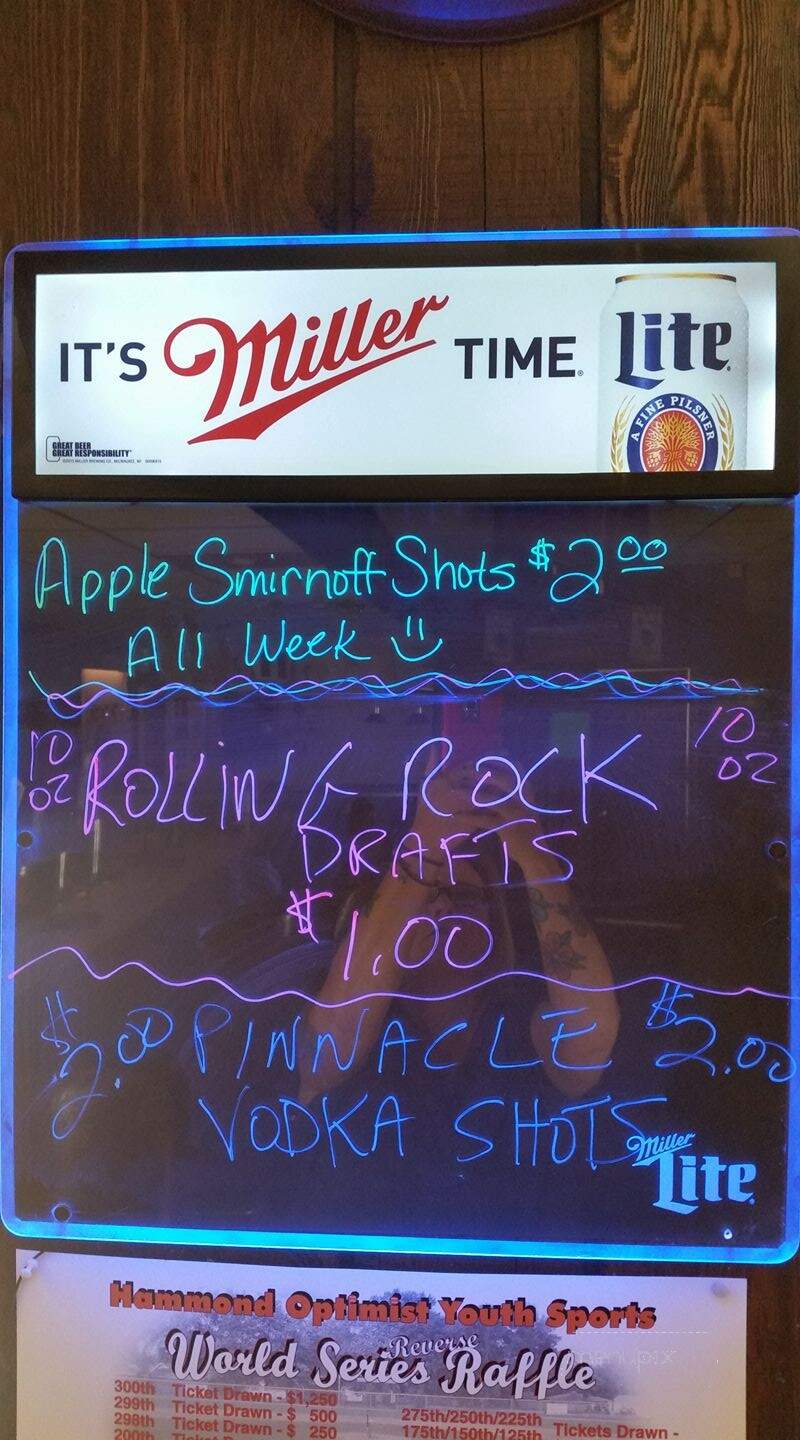 IT'S Miller TIME.
Lite
A FINE PILSNER
GREAT BEER
GREAT RESPONSIBILITY
Apple Smirnoff Shots $2.00
All Week
10 OZ ROLLING ROCK 10 OZ
DRAFTS
$1.00
$2.00 PINNACLE $2.00
VODKA SHOTS
Miller
Lite
Hammond Optimist Youth Sports
Reverse
World Series Raffle
300th Ticket Drawn - $1,250
299th Ticket Drawn - $ 500 275th/250th/225th
298th Ticket Drawn - $ 250 175th/150th/125th Tickets Drawn -
200th Ticket